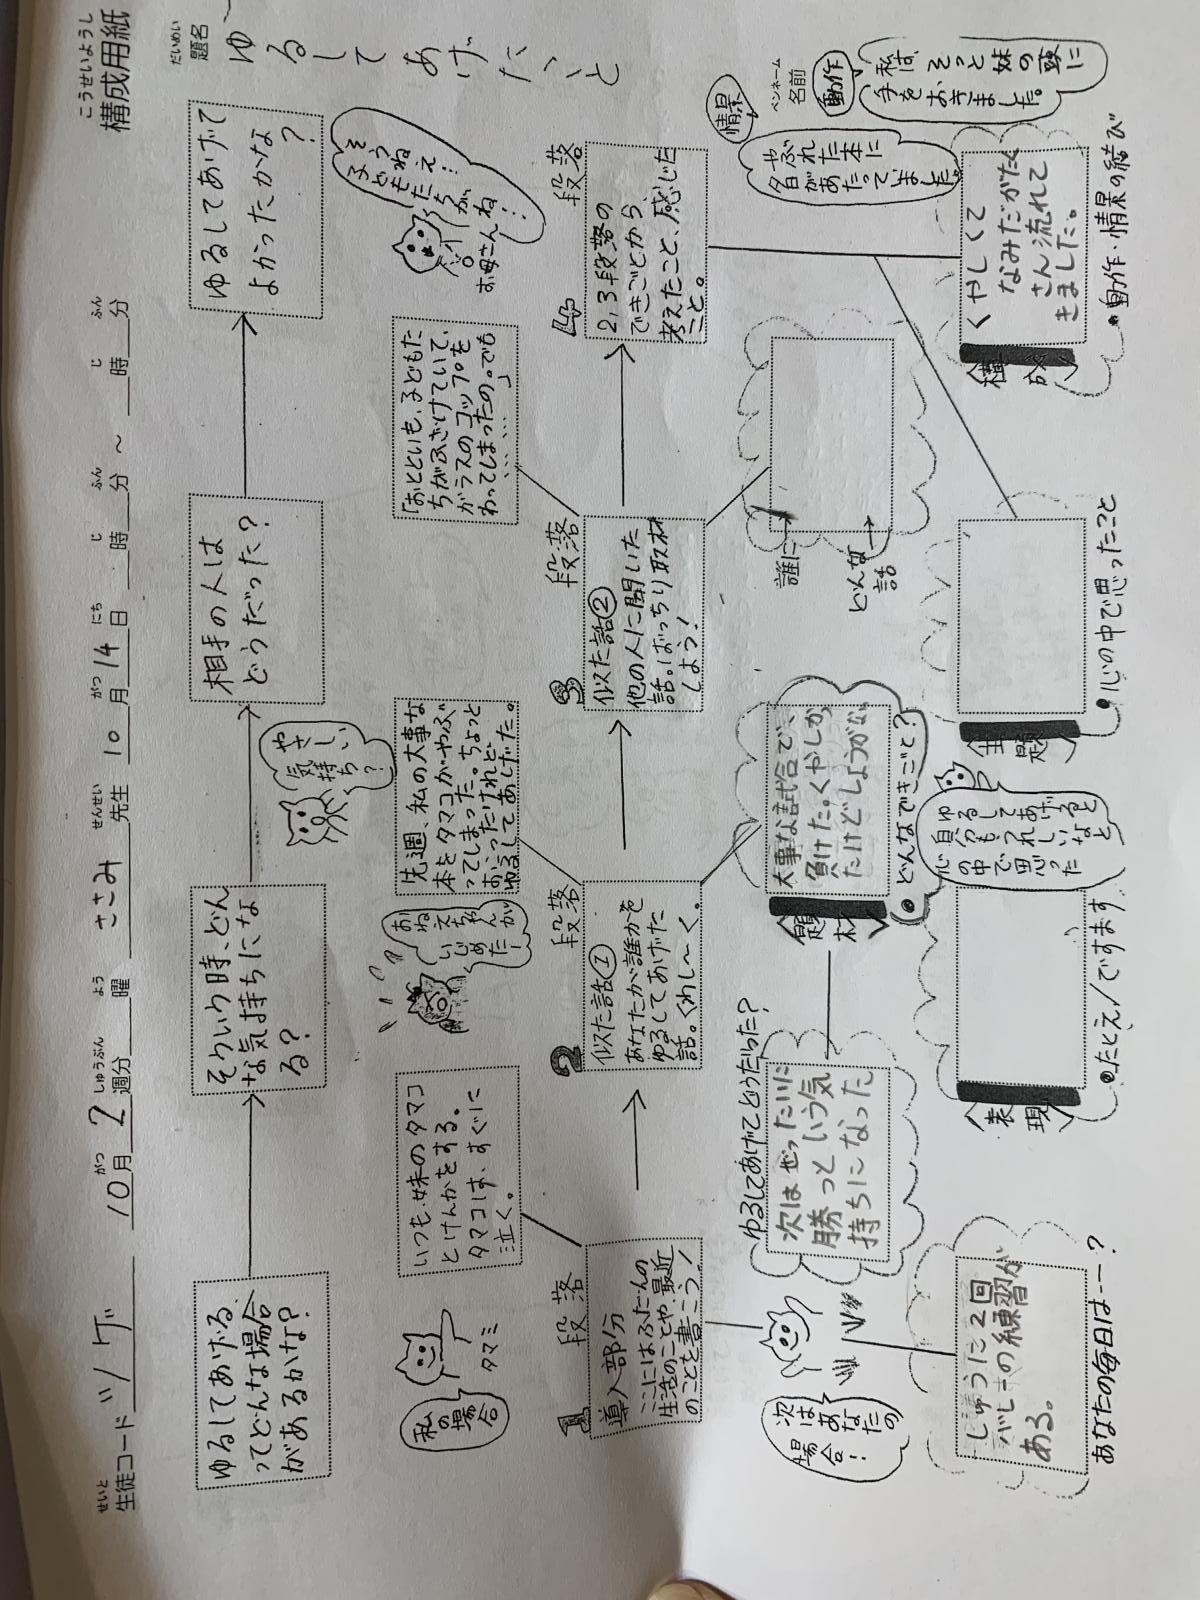 こうせいようし
構成用紙
せいと
生徒コード ツゲ
がつ しゅうぶん よう せんせい がつ にち じ ふん じ ふん
10月2週分 曜 ささみ 先生 10月14日 時 分 ~ 時 分
だいめい
題名
ゆるしてあげたいと
ペンネーム
名前
ゆるしてあげる
ってどんな場合
があるかな?
そういう時、どん
な気持ちにな
る?
やさしい
気持ち?
相手の人は
どうだった?
ゆるしてあげて
よかったかな
?
私の
場合
タマミ
いつも、妹のタマコ
とけんかをする。
タマコは、すぐに
泣く。
おねえちゃんが
いじめたー
先週、私の大事な
本をタマコがやぶ
ってしまった。ちょっと
おこったけれど、
ゆるしてあげた。
「おとといも、子どもた
ちがふざけていて、
ガラスのコップを
わってしまったの。でも
…………」
そうねえ!
子どもたちがね!
お母さん
1 段落
導入部分
ここにはふだんの
生活のことや、最近
のことを書こう!
2 段落
似た話①
あなたが誰かを
ゆるしてあげた
話。くわし~く。
3 段落
似た話②
他の人に聞いた
話。ばっちり取材
しよう!
4 段落
2,3段落の
できごとから、
考えたこと、感じた
こと。
次はあなたの
場合!
ゆるしてあげてどうだった?
次はぜったいに
勝っという気
持ちになった
大事な試合で、
負けた。くやしか
ったけどしょうがない
題材
●どんなできごと?
誰に→
どんな話→
情景
やぶれた本に
名があたっていました。
動作
私は、そっと妹の頭に
手をおきました。
しゅうに2回
バレーの練習が
ある。
あなたの毎日は――?
表現
●たとえ/ですます
ゆるしてあげると
自分もうれしいなと
心の中で思った
主題
●心の中で思ったこと
くやしくて
なみだがたく
さん流れて
きました。
構成
●動作・情景の結び